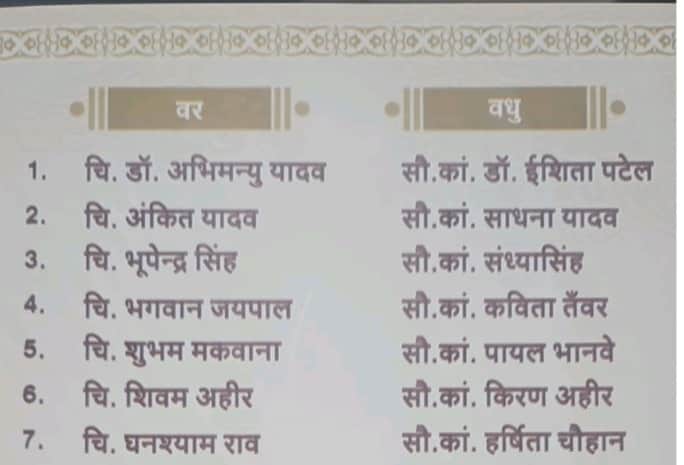 वर वधु
1. चि. डॉ. अभिमन्यु यादव सौ.कां. डॉ. ईशिता पटेल
2. चि. अंकित यादव सौ.कां. साधना यादव
3. चि. भूपेन्द्र सिंह सौ.कां. संध्यासिंह
4. चि. भगवान जयपाल सौ.कां. कविता तँवर
5. चि. शुभम मकवाना सौ.कां. पायल भानवे
6. चि. शिवम अहीर सौ.कां. किरण अहीर
7. चि. घनश्याम राव सौ.कां. हर्षिता चौहान